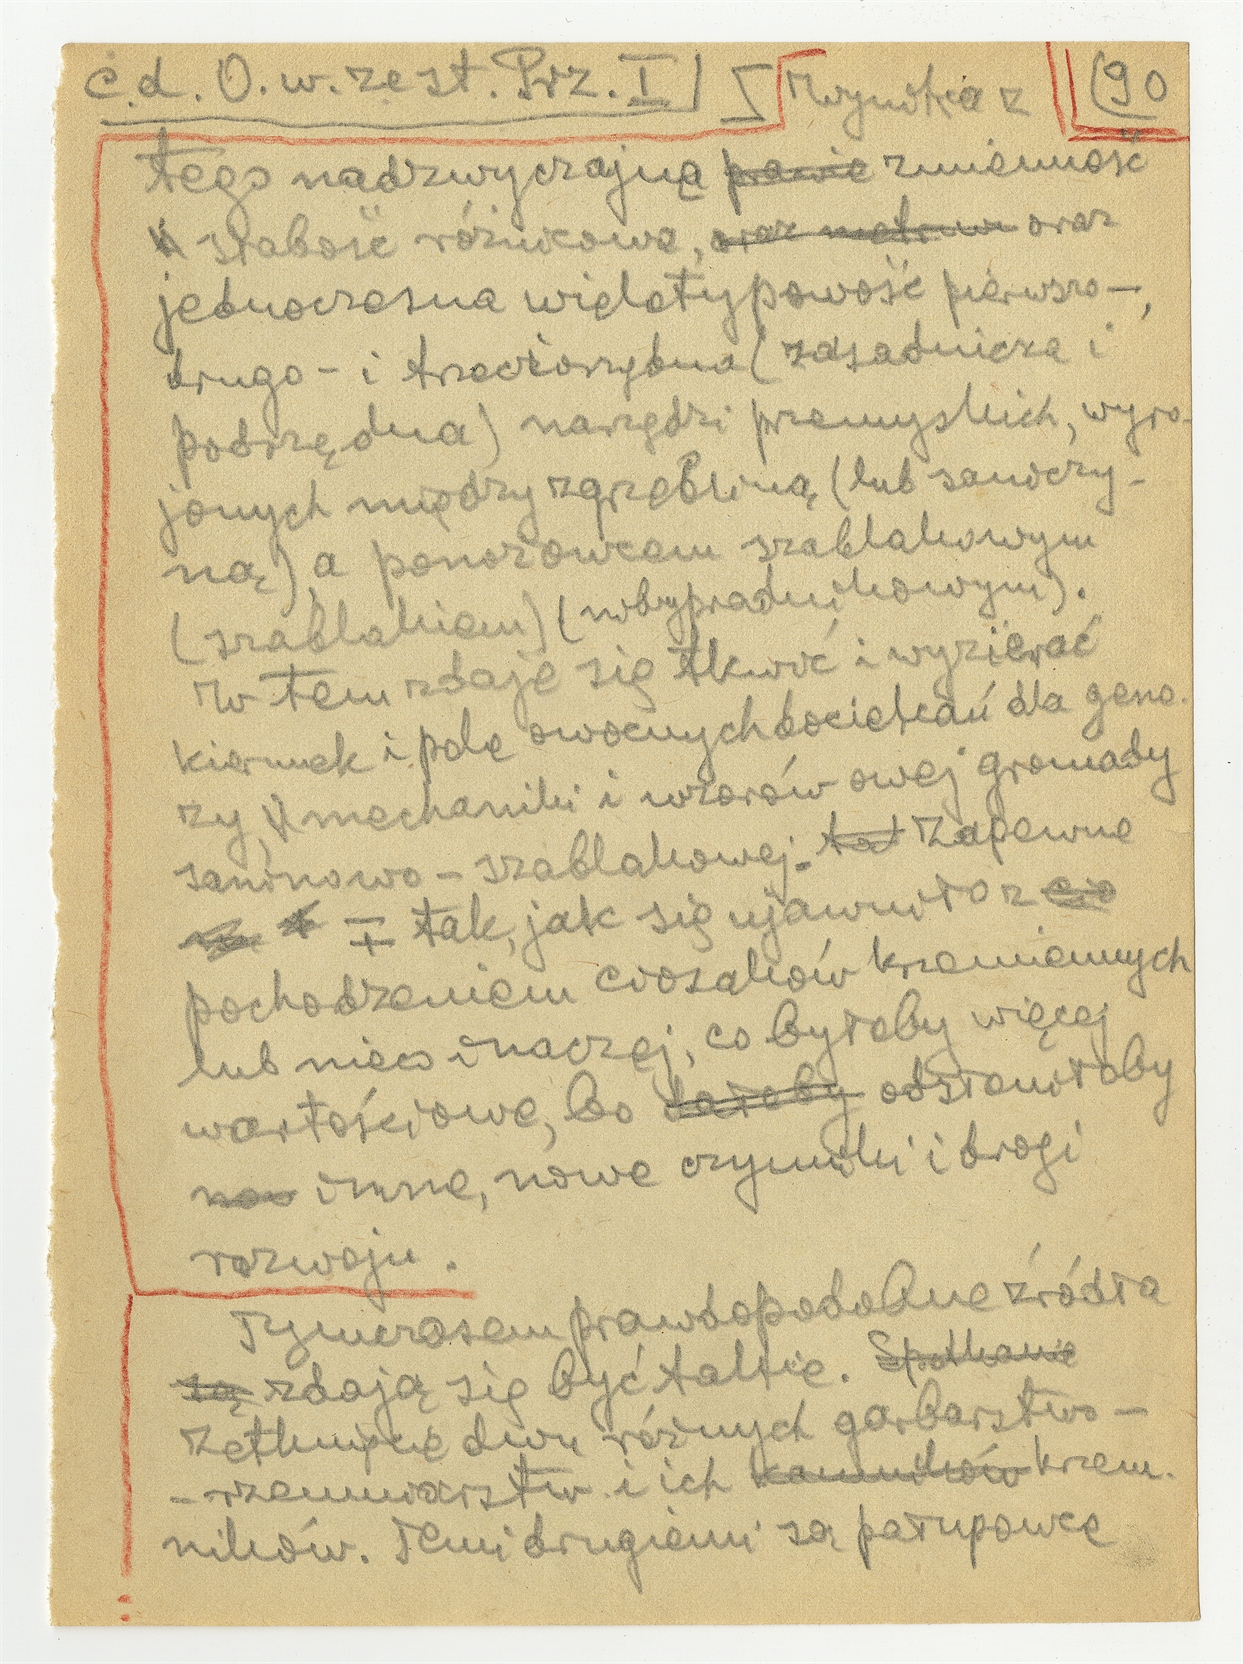 c.d. O. w. zest. Prz. I] Wynika z (90
tego nadzwyczajna prawie zmienność
i słabość różnicowa, oraz oraz
jednoczesna wielotypowość pierwszo-,
drugo- i trzeciorzędna (zasadnicza i
podrzędna) narzędzi przemyskich, wyro-
jonych między zgrzebliną (lub saniczy-
ną), a ponożowcem szablakowym
(szablakiem)
W tem zdaje się tkwić i wyzierać
kierunek i pole owocnych dociekań dla gene-
zy, mechaniki i wzorów owej gromady
saninowo-szablakowej. Zapewne
∓ tak, jak się ujawniło z
pochodzeniem ciosaków krzemiennych
lub nieco inaczej, co byłoby więcej
wartościowe, bo dałoby odsłoniłoby
inne, nowe czynniki i drogi
rozwoju.
Tymczasem prawdopodobne źródła
są zdają się być takie. Spotkanie
Zetknięcie dwu różnych garbarstwo-
-rzemniarstw i ich kamników krzem.
ników. Temi drugiemi są patupowce